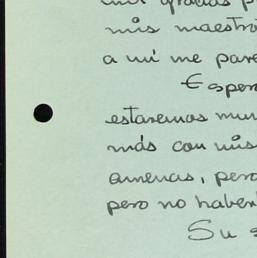 mil gracias p
mis maestro
a mí me pare
Esper
estaremos mu
más con mis
amenas, pero
pero no haber
Su s